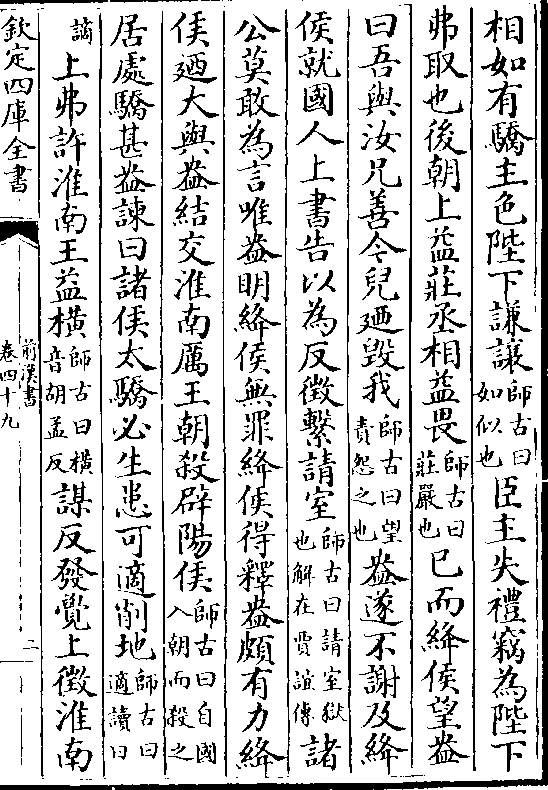 相如有驕主色陛下謙讓師古曰如似也臣主失禮竊為陛下
弗取也後朝上益莊丞相益畏師古曰莊嚴也已而絳侯望盎
曰吾與汝兄善今兒廼毀我師古曰望責怨之也盎遂不謝及絳
侯就國人上書告以為反徵繫請室師古曰請室獄也解在賈誼傳諸
公莫敢為言唯盎明絳侯無罪絳侯得釋盎頗有力絳
侯廼大與盎結交淮南厲王朝殺辟陽侯師古曰自國入朝而殺之
居處驕甚盎諫曰諸侯太驕必生患可適削地師古曰適讀曰
讁上弗許淮南王益橫師古曰橫音胡孟反謀反發覺上徵淮南
欽定四庫全書
前漢書
卷四十九
二